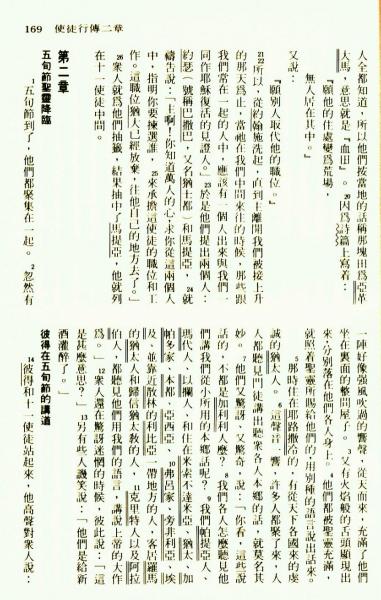 169　使徒行傳二章
人全都知道，所以他們按當地的話稱那塊田爲亞革
大馬，意思就是『血田』。20因爲詩篇上寫着：
『願他的住處變爲荒場，
無人居在其中。』
又說：
『願別人取代他的職位。』
21 22所以，從約翰施洗起，直到主離開我們被接上升
的那天爲止，當祂在我們中間來往的時候，那些跟
我們常在一起的人中，應該有一個人出來與我們一
同作耶穌復活的見證人。」23於是他們提出兩個人：
約瑟（號稱巴撒巴，又名猶士都）和馬提亞，24就
禱告說：「主啊！你知道萬人的心，求你從這兩個人
中，指明你要揀選誰，25來承擔這使徒的職位和工
作。這職位猶大已經放棄，往他自己的地方去了。」
26衆人就爲他們抽籤，結果抽中了馬提亞，他就列
在十一使徒中間。
第二章
五旬節聖靈降臨
1五旬節到了，他們都聚集在一起。2忽然有
一陣好像強風吹過的響聲，從天而來，充滿了他們
坐在裏面的整間屋子。3又有火焰般的舌頭顯現出
來，分別落在他們各人身上。4他們都被聖靈充滿，
就照着聖靈所賜給他們的，用別種的語言說出話來。
5那時住在耶路撒冷的，有從天下各國來的虔
誠的猶太人。6這聲音一響，許多人都聚了來，人
人都聽見門徒講出聽衆各人本鄉的話，就莫名其
妙。7他們又驚訝、又驚奇，說：「你看，這些說
話的，不都是加利利人麼？8我們各人怎麼聽見他
們講我們從小所用的本鄉話呢？9我們帕提亞人、
瑪代人、以攔人，和住在米索不達米亞、猶太、加
帕多家、本都、亞西亞、10弗呂家、旁非利亞、埃
及、並靠近古利奈的利比亞一帶地方的人，客居羅馬
的猶太人和歸信猶太教的人，11克里特人以及阿拉
伯人，都聽見他們用我們的語言，講說上帝的大作
爲。」12衆人還在驚訝迷惘的時候，彼此說：「這
是甚麼意思？」13另有些人譏笑說：「他們是給新
酒灌醉了。」
彼得在五旬節的講道
14彼得和十一使徒站起來，他高聲對衆人說：